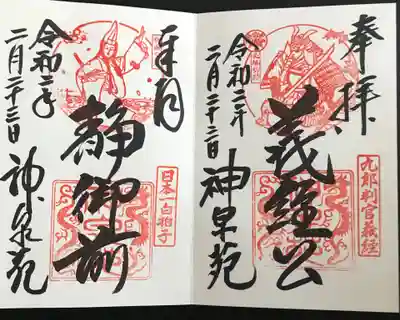 奉拝
義経公
九郎判官義経
令和二年
二月二十三日
神泉苑
奉拝
静御前
日本一白拍子
令和二年
二月二十三日
神泉苑